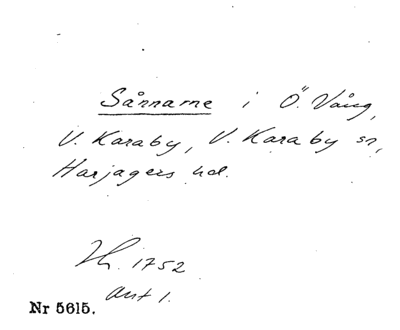 Sånnarne i Ö. Vång,
V. Karaby, V. Karaby sn,
Harjagers hd.
Lh. 1752
akt 1.
Nr 5615.